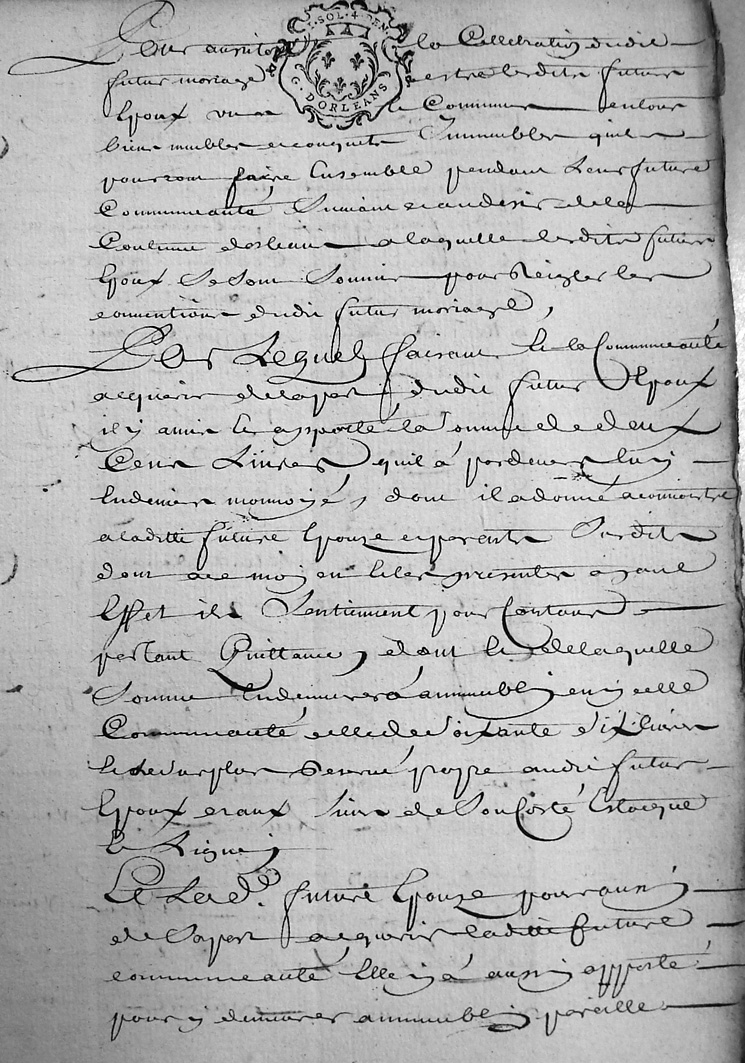 Pour aussitost la Cellebration dudit
futur mariage estre lesdits future
Epoux uns Commune en tous
biens meubles et conquets Immeubles quils
pourront faire Ensemble pendant Leur future
Communeauté Suivant et au desir de la
Coutume dorleans a laquelle lesdits future
Epoux Se Sont Soumis pour Reigler les
conventions dudit futur mariage,
Pour Lequel faisant Et la Communeauté
acquerir de la part dudit futur Epoux
il y aura Et apporté la Somme de deux
Cent Livres quil a pardevers luy
En deniers monnoyé, dont il a donné a connoistre
a laditte future Epouze et parents Susdits
dont
Effet ils Sentiennent pour Contans
partant Quittance, et dont de laquelle
Somme En demeurera ammeubly en ycelle
Communeauté celle de Soixante dix Livres
Et le Surplus Sera propre audit futur
Epoux et aux Siens de Son Costé Estocque
Et Ligne
Et Lad.e future Epouze pour aussy
de Sa part acquerir laditte future
communeauté Elle y a aussy apporté
pour y demeurer ammeubly pareille
I·SOL·4·DEN
G·DORLEANS